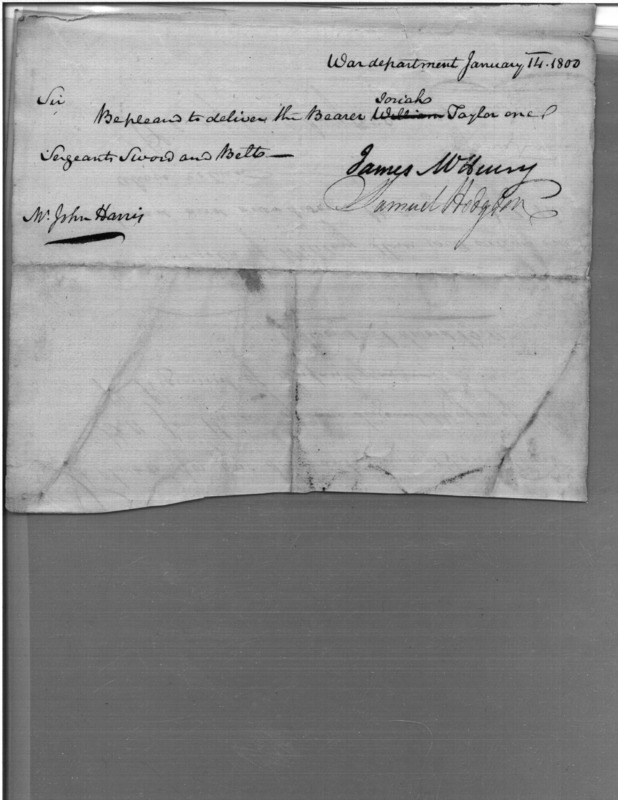 War department January 14. 1800
Sir
Josiah
Be pleased to deliver the Bearer William Taylor one
Sergeants Sword and Belts —
James McHenry
Samuel Hodgdon
Mr. John Harris